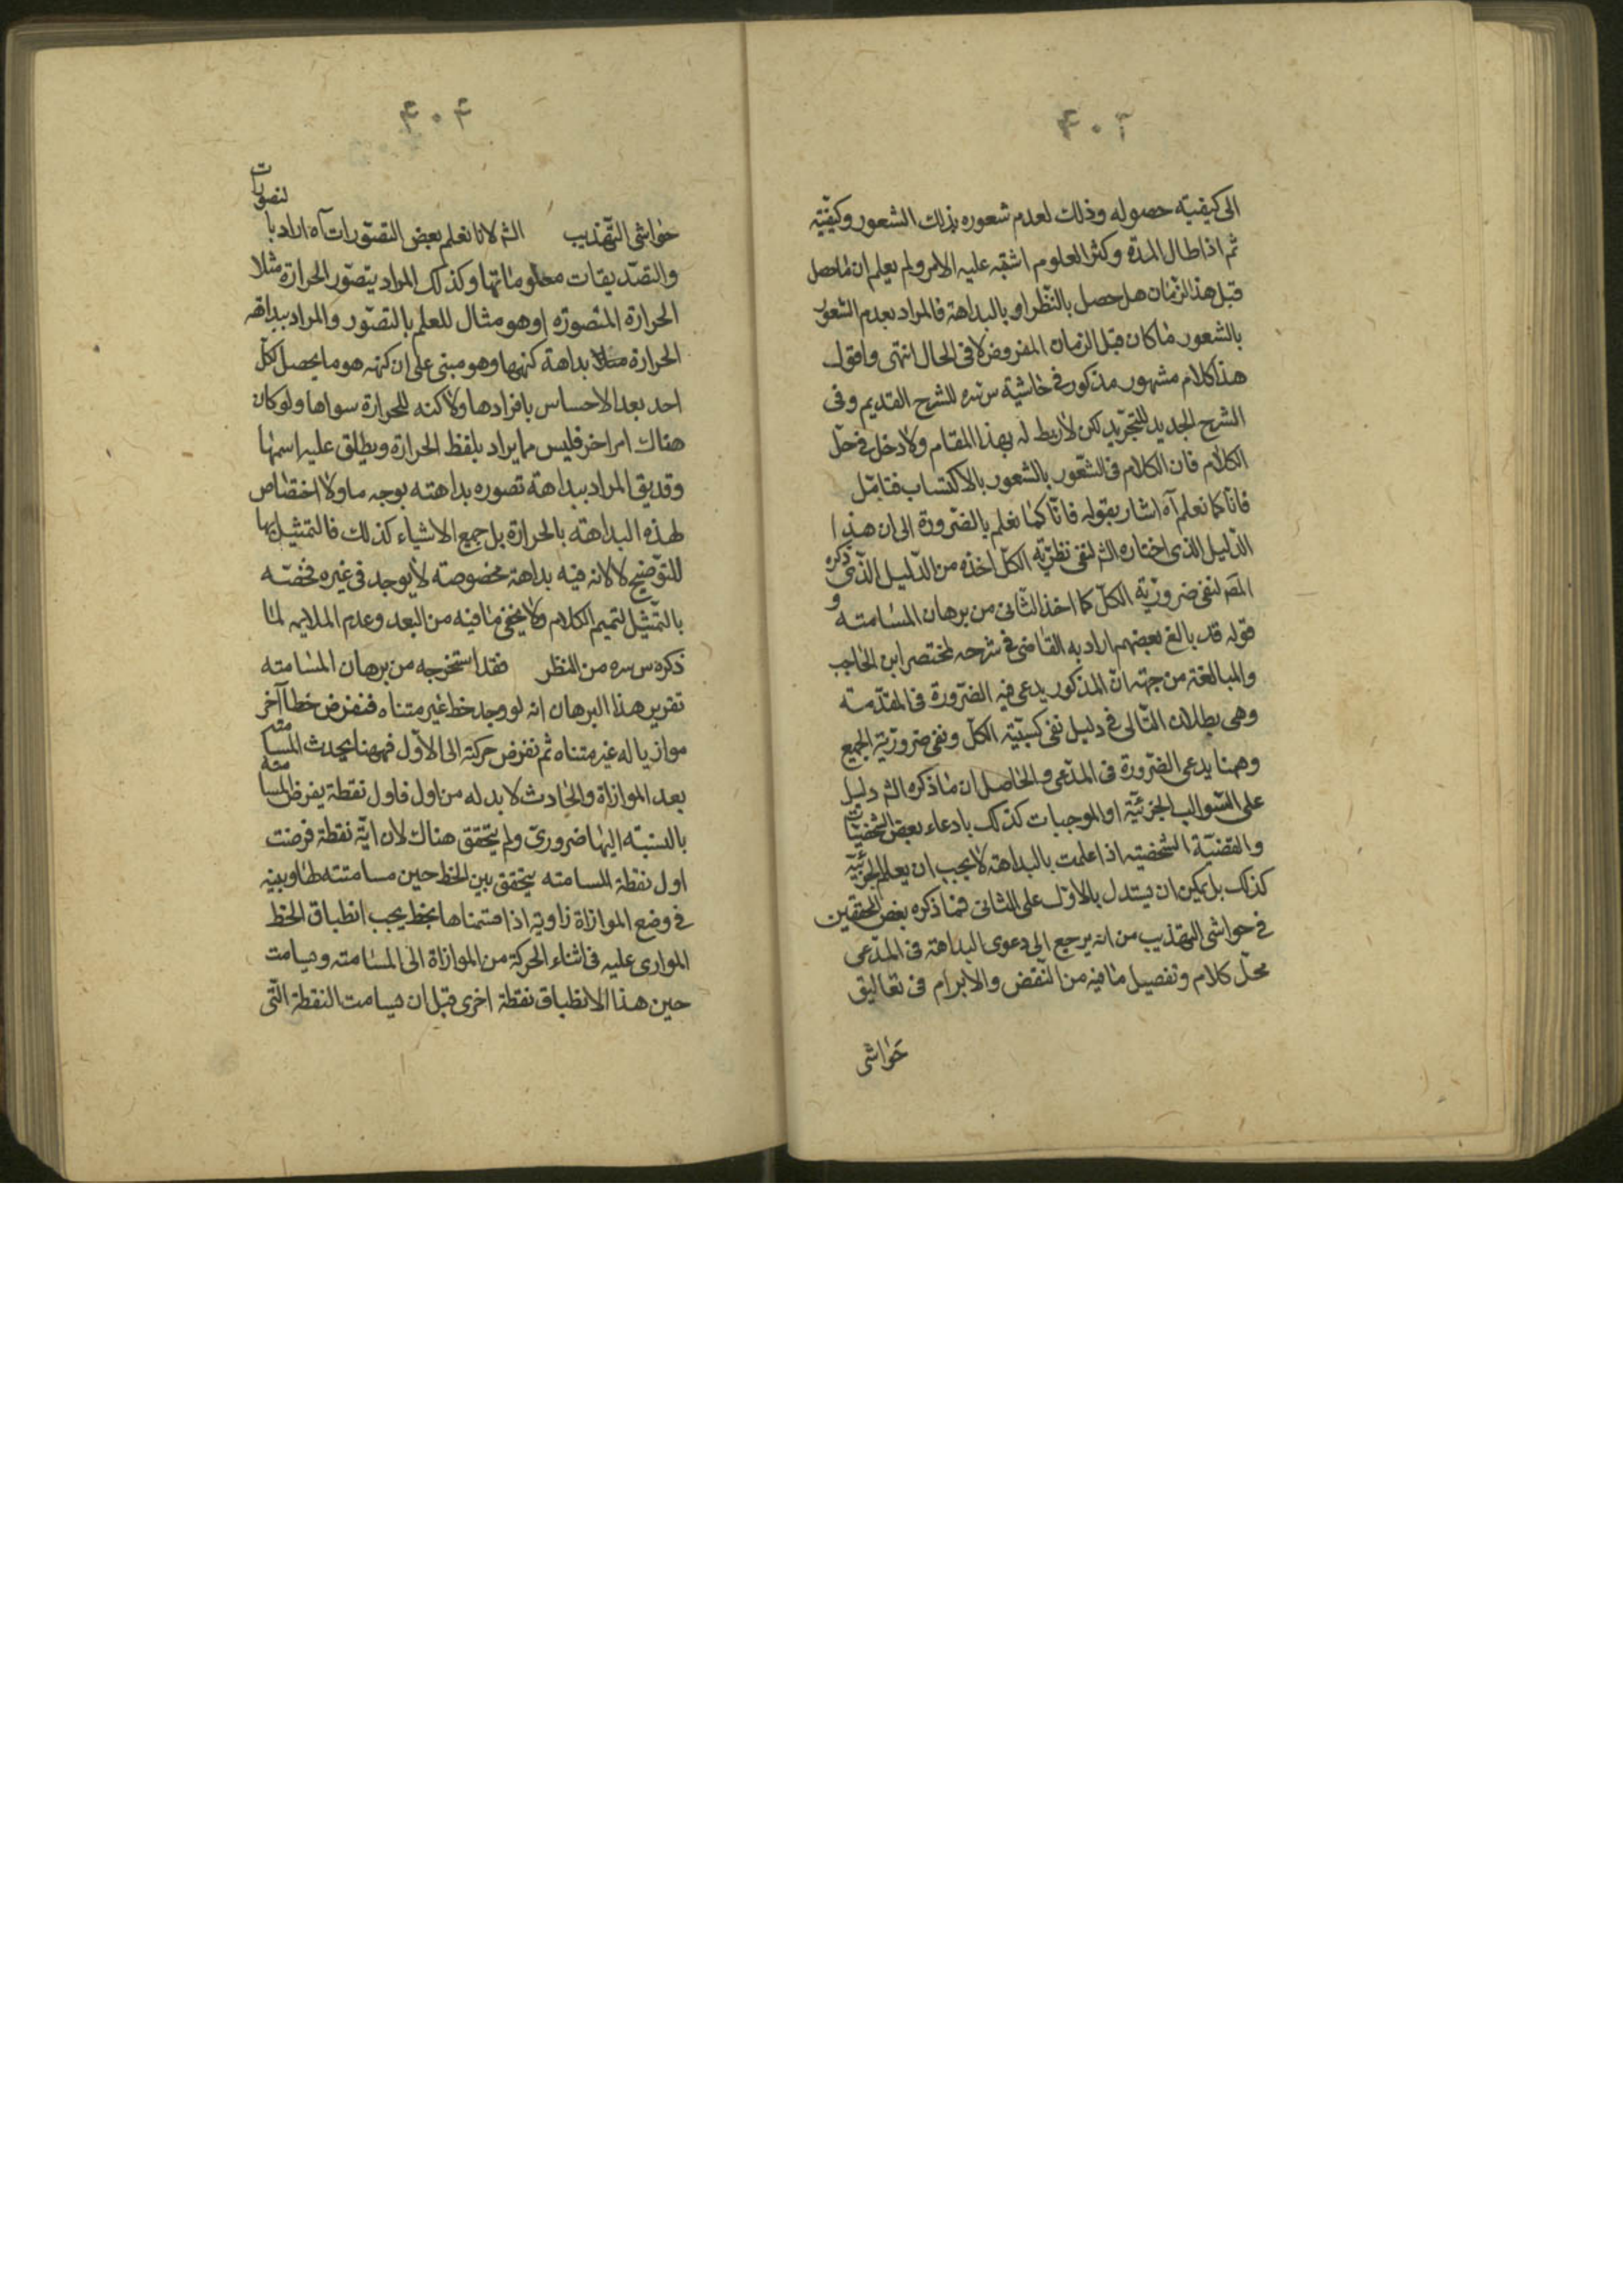 الى كيفيّته حصوله وذلك لعدم شعوره بذلك الشعور وكيفيّته
ثم اذا طال المدّة وكثر العلوم اشتبه عليه الامر ولم يعلم ان ما حصل
قبل هذا الزمان هل حصل بالنّظر او بالبداهة فالمراد بعدم الشعور
بالشعور ما كان قبل الزمان المفروض لا فى الحال انتهى واقول
هذا كلام مشهور مذكور فى حاشية س سره للشرح القديم وفى
الشرح الجديد للتجريد لكن لا ربط له بهذا المقام ولا دخل فى حلّ
الكلام فان الكلام فى الشعور بالشعور بالاكتساب فتامّل
فانّا كما نعلم آه اشار بقوله فانّا كما نعلم بالضّرورة الى ان هذا
الدّليل الذى اختاره الش لنفى نظريّة الكلّ اخذه من الدّليل الذّى ذكره
المص لنفى ضروريّة الكلّ كما اخذ الثّانى من برهان المسامته و
قوله قد بالغ بعضهم اراد به القاضى فى شرحه لمختصر ابن الحاجب
والمبالغة من جهته انّ المذكور يدعى فيه الضّرورة فى المقدّمته
وهى بطلان التّالى فى دليل نفى كسبيّته الكلّ ونفى ضروريّته الجميع
وههنا يدعى الضّرورة فى المدّعى والحاصل ان ما ذكره الش دليل
على السّوالب الجزئيّة او الموجبات كذلك بادعاء بعض الشّخصيّات
والقضيّة الشخصيّته اذا علمت بالبداهته لا يجب ان يعلم الجزئيّة
كذلك بل يمكن ان يستدل بالاوّل على الثانى فما ذكره بعض المحققين
فى حواشى التهذيب من انه يرجع الى دعوى البداهته فى المدّعى
محلّ كلام وتفصيل ما فيه من النّقض والابرام فى تعاليق
حواشى
۴۰۴
حواشى التّهذيب الش لانا نعلم بعض التصوّرات آه اراد بالتصورات
والتصّديقات معلوماتها وكذلك المراد بتصوّر الحرارة مثلا
الحرارة المتصورّه او هو مثال للعلم بالتصوّر والمراد ببداهة
الحرارة مثلا بداهة كنهها وهو مبنى على ان كنهه هو ما يحصل لكلّ
احد بعد الاحساس بافرادها ولا كنه للحرارة سواها ولو كان
هناك امر اخر فليس مما يراد بلفظ الحرارة ويطلق عليه اسمها
وقد يق المراد ببداهة تصوره بداهته بوجه ما ولا اختصاص
لهذه البداهته بالحرارة بل جميع الاشياء كذلك فالتمثيل بها
للتوّضيح لا لانه فيه بداهة مخصوصته لا يوجد فى غيره فخصّه
بالتّمثيل لتميم الكلام ولا يخفى ما فيه من البعد وعدم الملايمه لما
ذكره س سره من النظر فقد استخرجه من برهان المسامته
تقرير هذا البرهان انه لو وجد خط غير متناه فنفرض خطا آخر
موازيا له غير متناه ثم نفرض حركة الى الاوّل فههنا يحدث المسامته
بعد الموازاة والحادث لا بد له من اول فاول نقطة يفرض المسامته
بالنسبته اليها ضرورىّ ولم يتحقق هناك لان ايّة نقطة فرضت
اول نقطة المسامته يتحقق بين الخط حين مسامتته لها وبينه
فى وضع الموازاة زاويه اذا قسّمناها بخط يجب انطباق الخط
الموازى عليه فى اثناء الحركة من الموازاة الى المسامته ويسامت
حين هذا الانطباق نقطة اخرى قبل ان يسامت النقطة الّتى